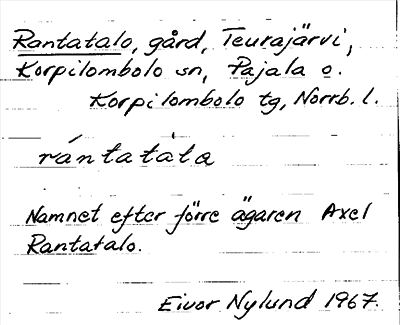 Rantatalo, gård, Teurajärvi,
Korpilombolo sn, Pajala o.
Korpilombolo tg, Norrb. l.
rántatàta
Namnet efter förre ägaren Axel
Rantatalo.
Eivor Nylund 1967.